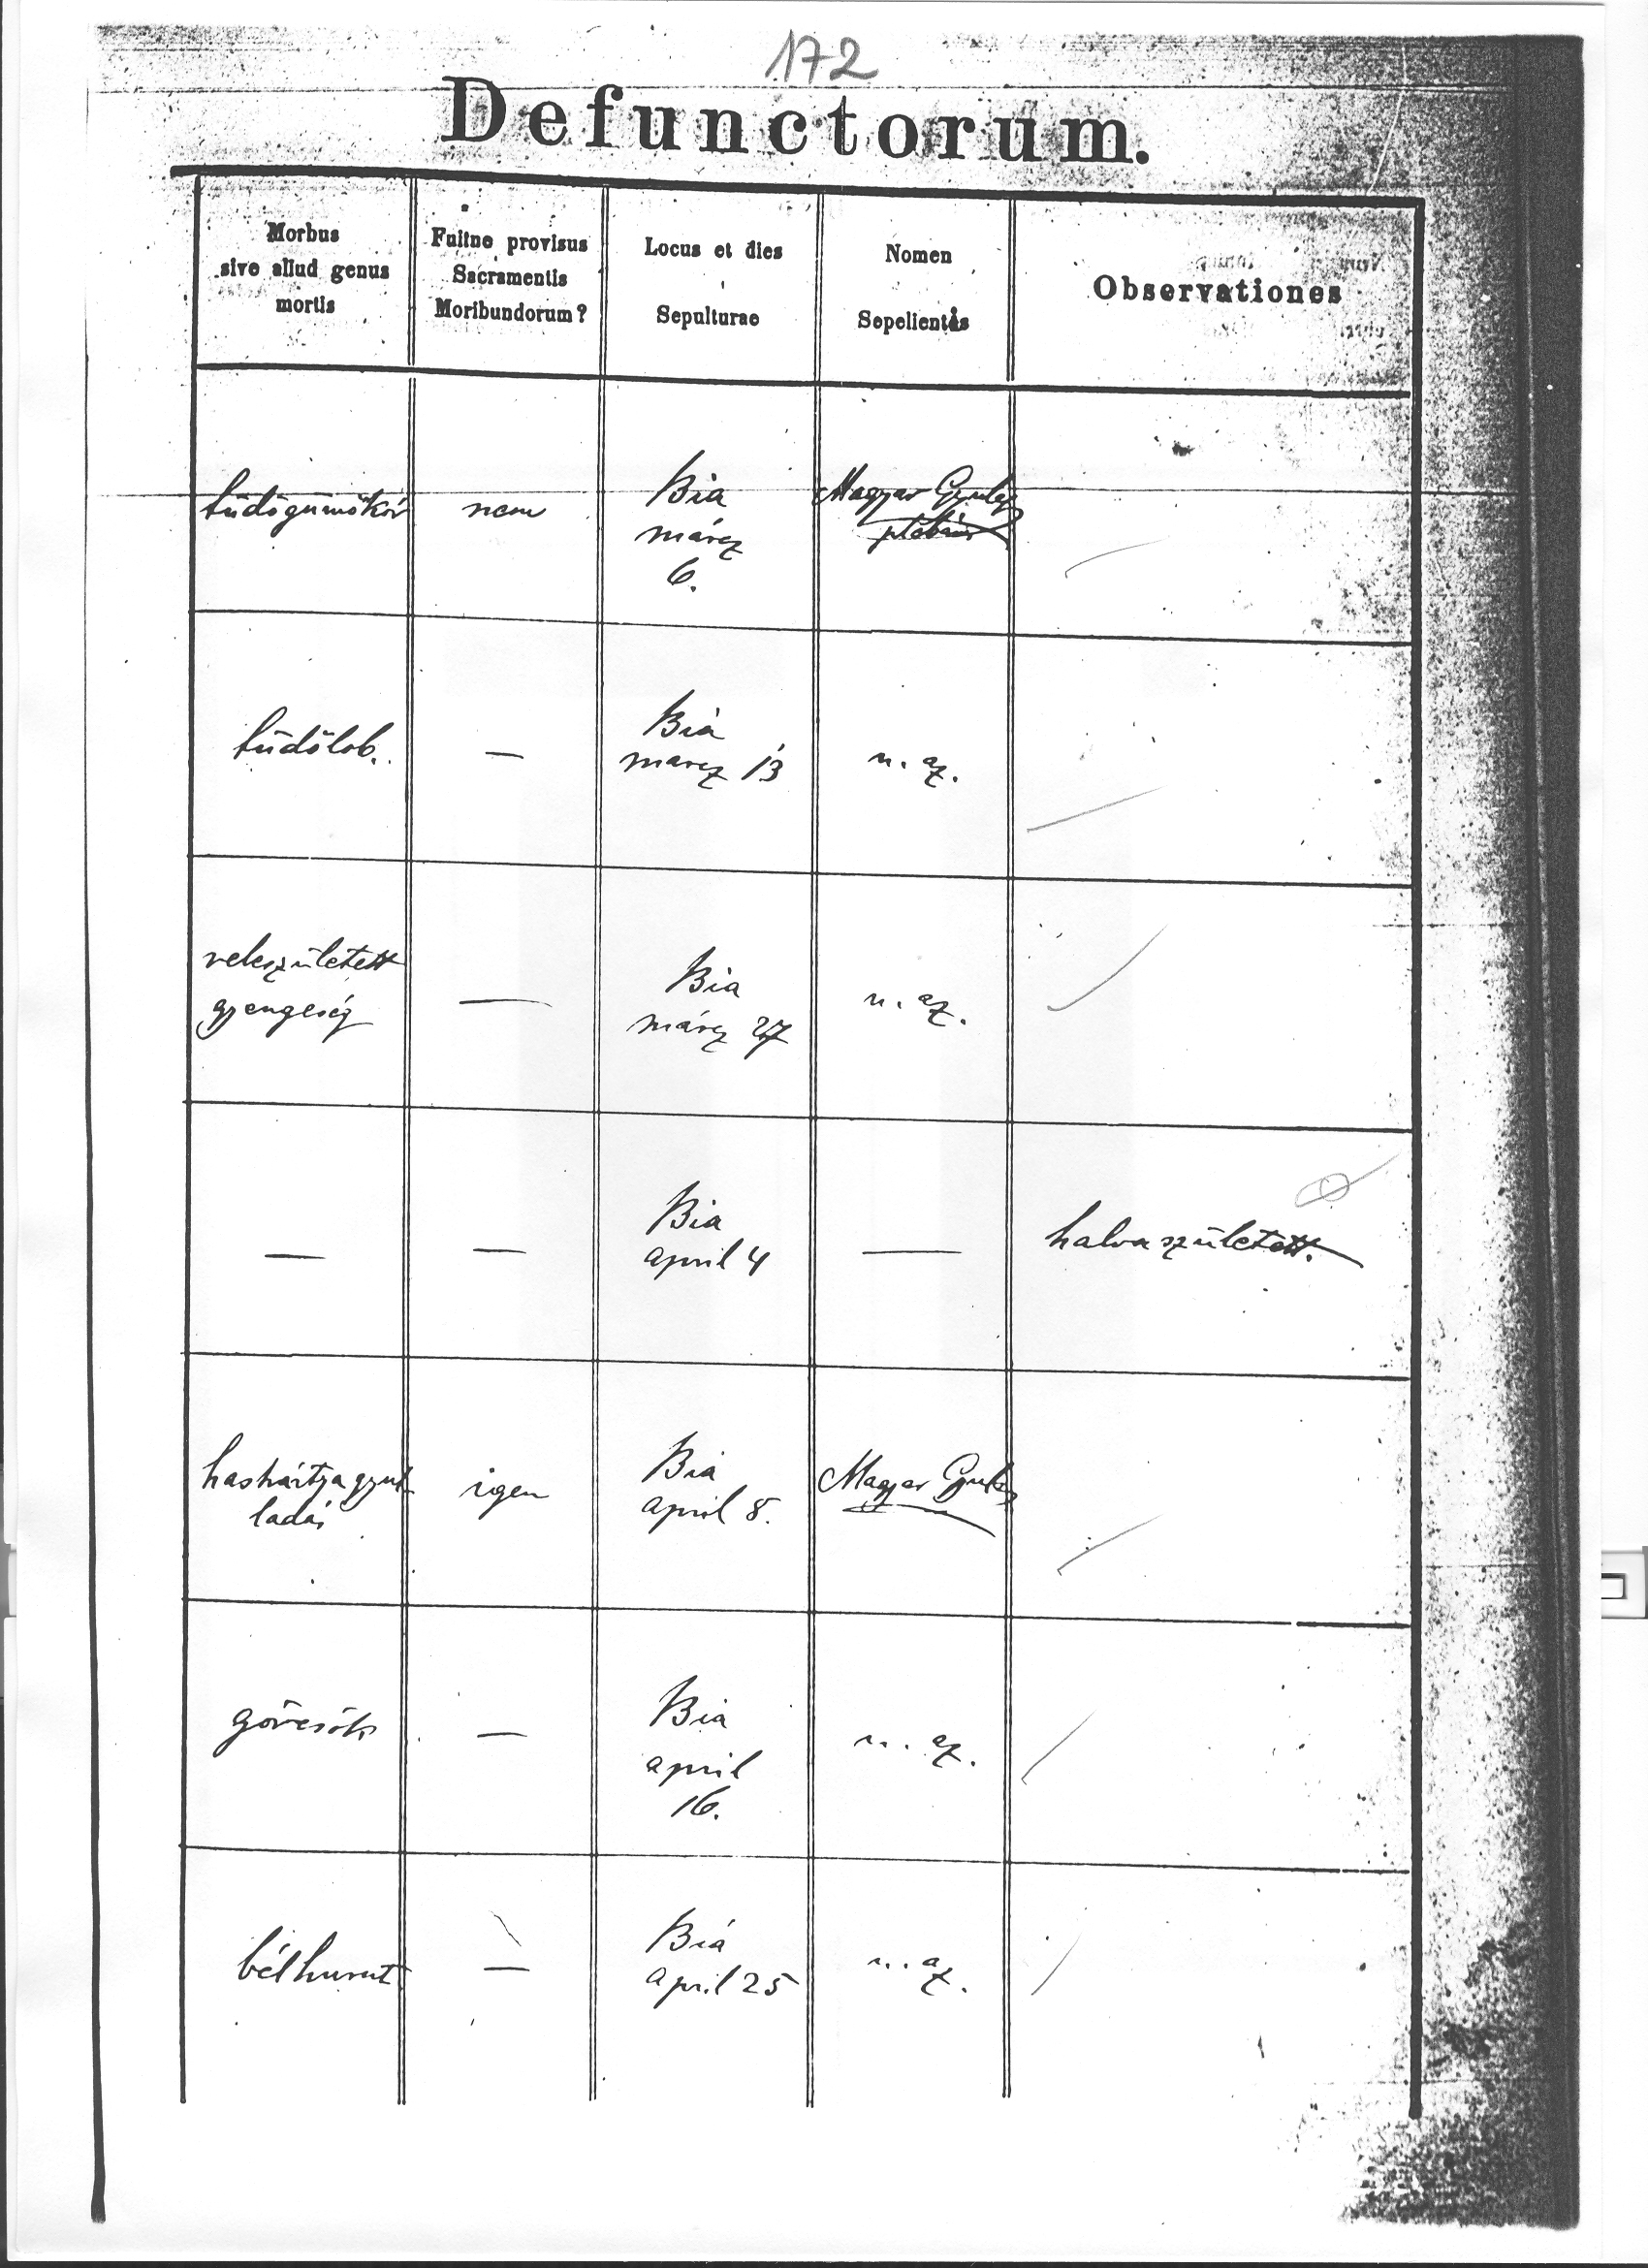 172
Defunctorum.
Morbus
sive aliud genus
mortis
Fuitne provisus
Sacramentis
Moribundorum?
Locus et dies
Sepulturae
Nomen
Sepelientis
Observationes
tüdőgümőkór
nem
Bia
márcz
6.
Magyar Gyula
plébános
tüdőlob.
—
Bia
marcz 13
u. az.
veleszületett
gyengeség
—
Bia
márcz 27
u. az.
—
—
Bia
april 4
—
halva született.
hashártya gyul
ladás
igen
Bia
april 8.
Magyar Gyula
görcsök
—
Bia
april
16.
u. az.
bélhurut
—
Biá
april 25
u. az.